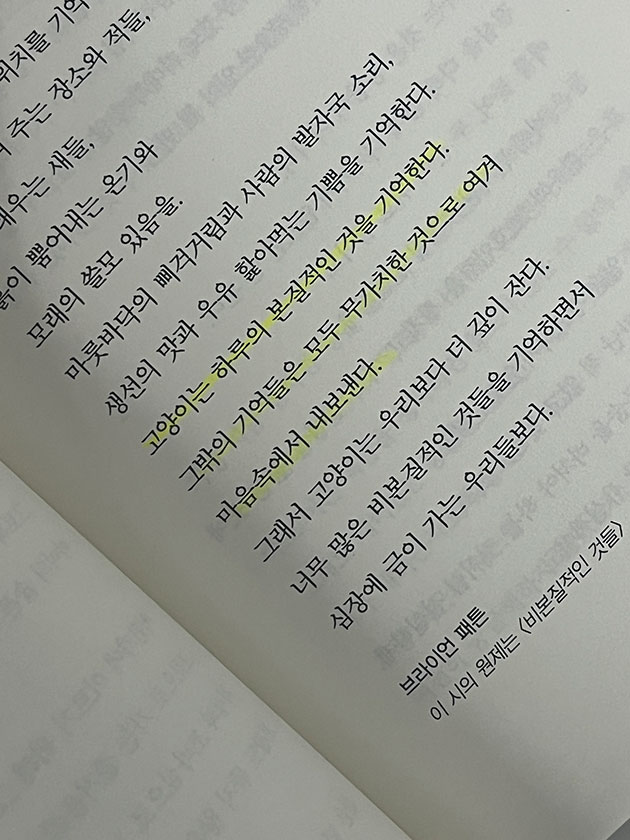 위치를 기억
주는 장소와 적들,
새들,
흙이 뿜어내는 온기와
모래의 쓸모 있음을.
마룻바닥의 삐걱거림과 사람의 발자국 소리,
생선의 맛과 우유 핥아먹는 기쁨을 기억한다.
고양이는 하루의 본질적인 것을 기억한다.
그밖의 기억들은 모두 무가치한 것으로 여겨
마음속에서 내보낸다.
그래서 고양이는 우리보다 더 깊이 잔다.
너무 많은 비본질적인 것들을 기억하면서
심장에 금이 가는 우리들보다.
브라이언 패튼
이 시의 원제는 〈비본질적인 것들〉